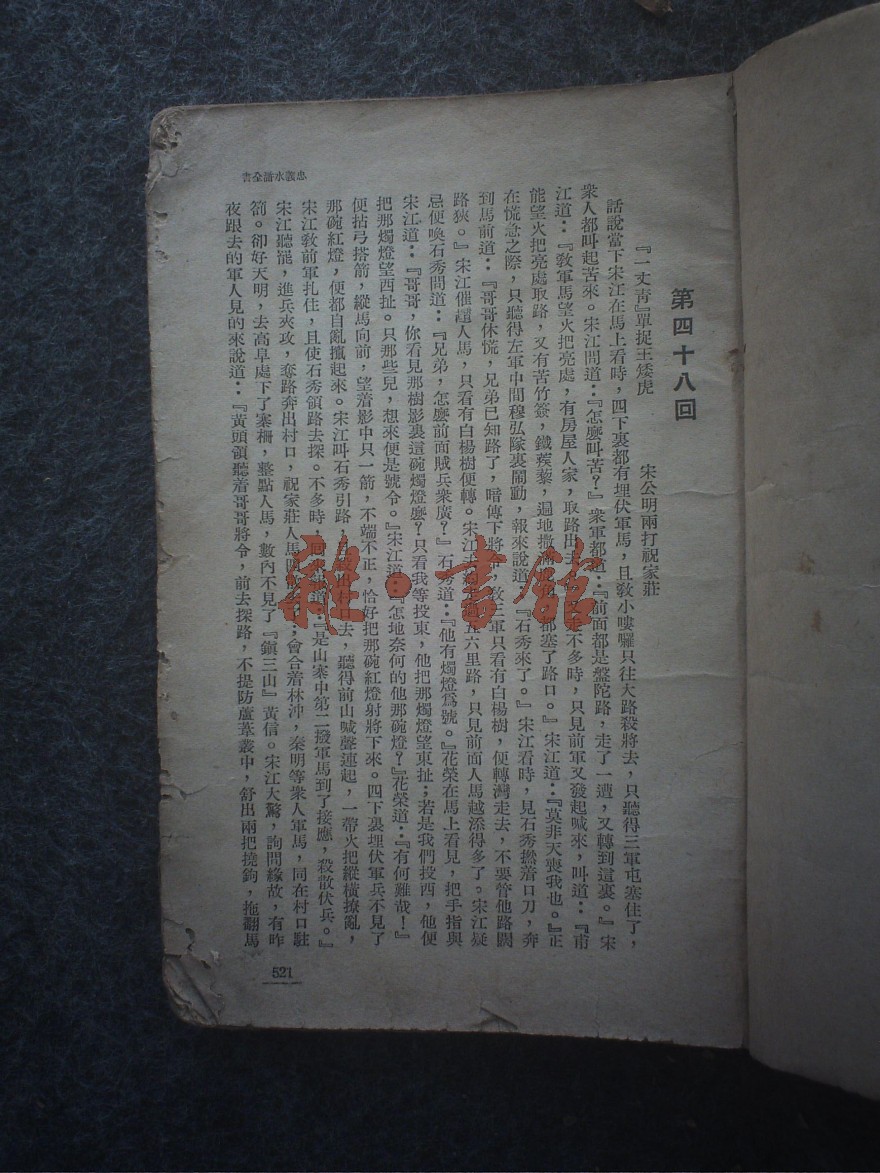 第四十八回
『一丈青』單捉王矮虎 宋公明兩打祝家莊
話說當下宋江在馬上看時，四下裏都有埋伏軍馬，且敎小嘍囉只往大路殺將去，只聽得三軍屯塞住了，
衆人都叫起苦來。宋江問道：『怎麼叫苦？』衆軍都道：『前面都是盤陀路，走了一遭，又轉到這裏。』宋
江道：『敎軍馬望火把亮處，有房屋人家，取路出去。』又走不多時，只見前軍又發起喊來，叫道：『甫
能望火把亮處取路，又有苦竹簽，鐵蒺藜，遍地撒滿，都塞了路口。』宋江道：『莫非天喪我也。』正
在慌急之際，只聽得左軍中間穆弘隊裏鬧動，報來說道：『石秀來了。』宋江看時，見石秀撚着口刀，奔
到馬前道：『哥哥休慌，兄弟已知路了，暗傳下將令，敎三軍只看有白楊樹，便轉灣走去，不要管他路闊
路狹。』宋江催趲人馬，只看有白楊樹便轉。宋江去約走過五六里路，只見前面人馬越添得多了。宋江疑
忌便喚石秀問道：『兄弟，怎麼前面賊兵衆廣？』石秀道：『他有燭燈爲號。』花榮在馬上看見，把手指與
宋江道：『哥哥，你看見那樹影裏這碗燭燈麼？只看我等投東，他把那燭燈望東扯；若是我們投西，他便
把那燭燈望西扯。只那些兒，想來便是號令。』宋江道：『怎地奈何的他那碗燈？』花榮道：『有何難哉！』
便拈弓搭箭，縱馬向前，望着影中只一箭，不端不正，恰好把那碗紅燈射將下來。四下裏埋伏軍兵不見了
那碗紅燈，便都自亂攛起來。宋江叫石秀引路，且殺出村口去，聽得前山喊聲連起，一帶火把縱橫撩亂，
宋江敎前軍扎住，且使石秀領路去探。不多時，回來報道：『是山寨中第二撥軍馬到了接應，殺散伏兵。』
宋江聽罷，進兵夾攻，奪路奔出村口，祝家莊人馬四散去了；會合着林沖，秦明等衆人軍馬，同在村口駐
箚。卻好天明，去高阜處下了寨柵，整點人馬，數內不見了『鎭三山』黃信。宋江大驚，詢問緣故，有昨
夜跟去的軍人見的來說道：『黃頭領聽着哥哥將令，前去探路，不提防蘆葦叢中，舒出兩把撓鉤，拖翻馬
忠義水滸全書
521
雜·書館